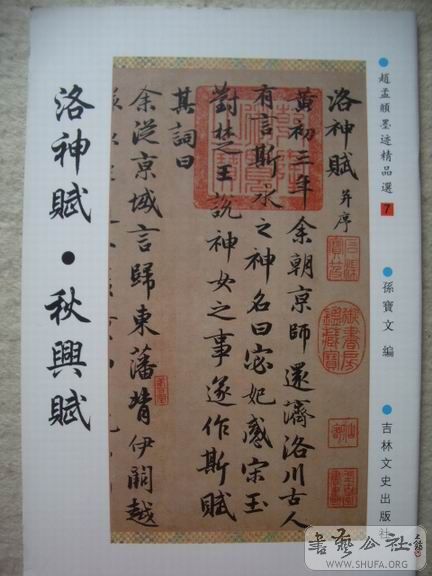 趙孟頫墨迹精品選 7
孫寶文 編
吉林文史出版社
洛神賦 并序
黃初三年余朝京師還濟洛川古人
有言斯水之神名曰宓妃感宋玉
對楚王說神女之事遂作斯賦
其詞曰
余從京域言歸東藩背伊闕越
洛神賦•秋興賦
御書房鑑藏寶
書藝公社
WWW.SHUFA.ORG